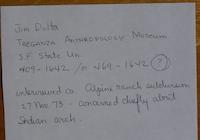 Jim Dotta
TREGANZA ANTHROPOLOGY MUSEUM
S.F. State Un.
469-1642 / or 469-1642 ?
interviewed ca. Alpine ranch subdivision
27 Mar. 73 - concerned chiefly about
Indian arch.